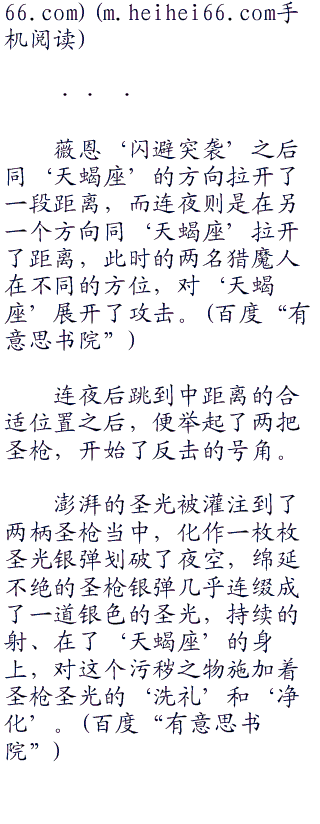 66.com)(m.heihei66.com手
机阅读)
. . .
薇恩‘闪避突袭’之后
同‘天蝎座’的方向拉开了
一段距离，而连夜则是在另
一个方向同‘天蝎座’拉开
了距离，此时的两名猎魔人
在不同的方位，对‘天蝎
座’展开了攻击。(百度“有
意思书院”)
连夜后跳到中距离的合
适位置之后，便举起了两把
圣枪，开始了反击的号角。
澎湃的圣光被灌注到了
两柄圣枪当中，化作一枚枚
圣光银弹划破了夜空，绵延
不绝的圣枪银弹几乎连缀成
了一道银色的圣光，持续的
射、在了‘天蝎座’的身
上，对这个污秽之物施加着
圣枪圣光的‘洗礼’和‘净
化’。(百度“有意思书
院”)